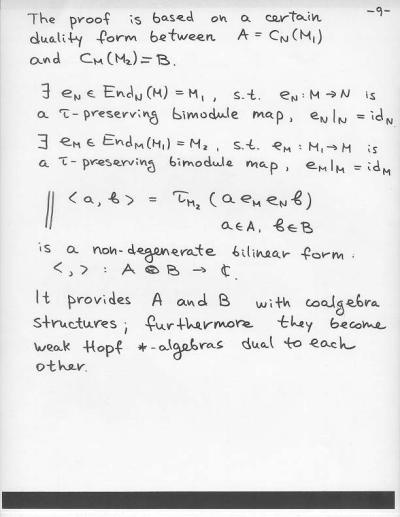 -9-
The proof is based on a certain
duality form between A = C_N(M_1)
and C_M(M_2) = B.
∃ e_N ∈ End_N(M) = M_1, s.t. e_N : M → N is
a τ-preserving bimodule map, e_N|_N = id_N
∃ e_M ∈ End_M(M_1) = M_2, s.t. e_M : M_1 → M is
a τ-preserving bimodule map, e_M|_M = id_M
‖ <a, b> = τ_{M_2} (a e_M e_N b)
a∈A, b∈B
is a non-degenerate bilinear form.
< , > : A ⊗ B → ℂ.
It provides A and B with coalgebra
structures; furthermore they become
weak Hopf *-algebras dual to each
other.